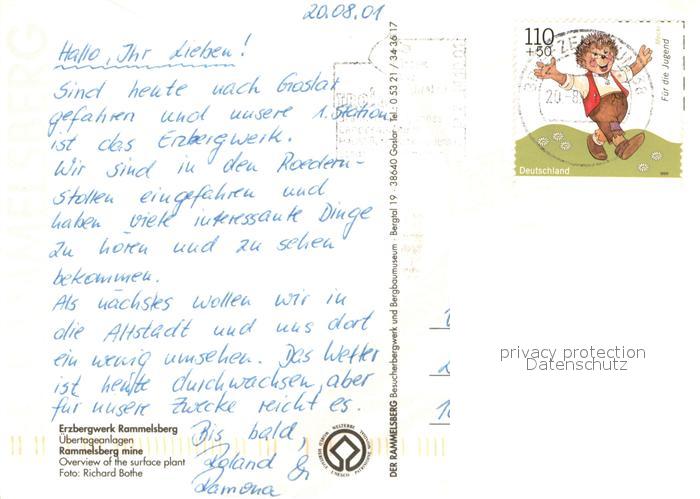 20.08.01
Hallo, Ihr Lieben!
Sind heute nach Goslar
gefahren und unsere 1. Station
ist das Erzbergwerk.
Wir sind in den Roedern-
stollen eingefahren und
haben viele interessante Dinge
zu hören und zu sehen
bekommen.
Als nächstes wollen wir in
die Altstadt und uns dort
ein wenig umsehen. Das Wetter
ist heute durchwachsen, aber
für unsere Zwecke reicht es.
Bis bald,
Roland &
Ramona
Erzbergwerk Rammelsberg
Übertageanlagen
Rammelsberg mine
Overview of the surface plant
Foto: Richard Bothe
DER RAMMELSBERG Besucherbergwerk und Bergbaumuseum · Bergtal 19 · 38640 Goslar · Tel.: 0 53 21 / 34 36 17
110
+50
Für die Jugend
Deutschland
privacy protection
Datenschutz